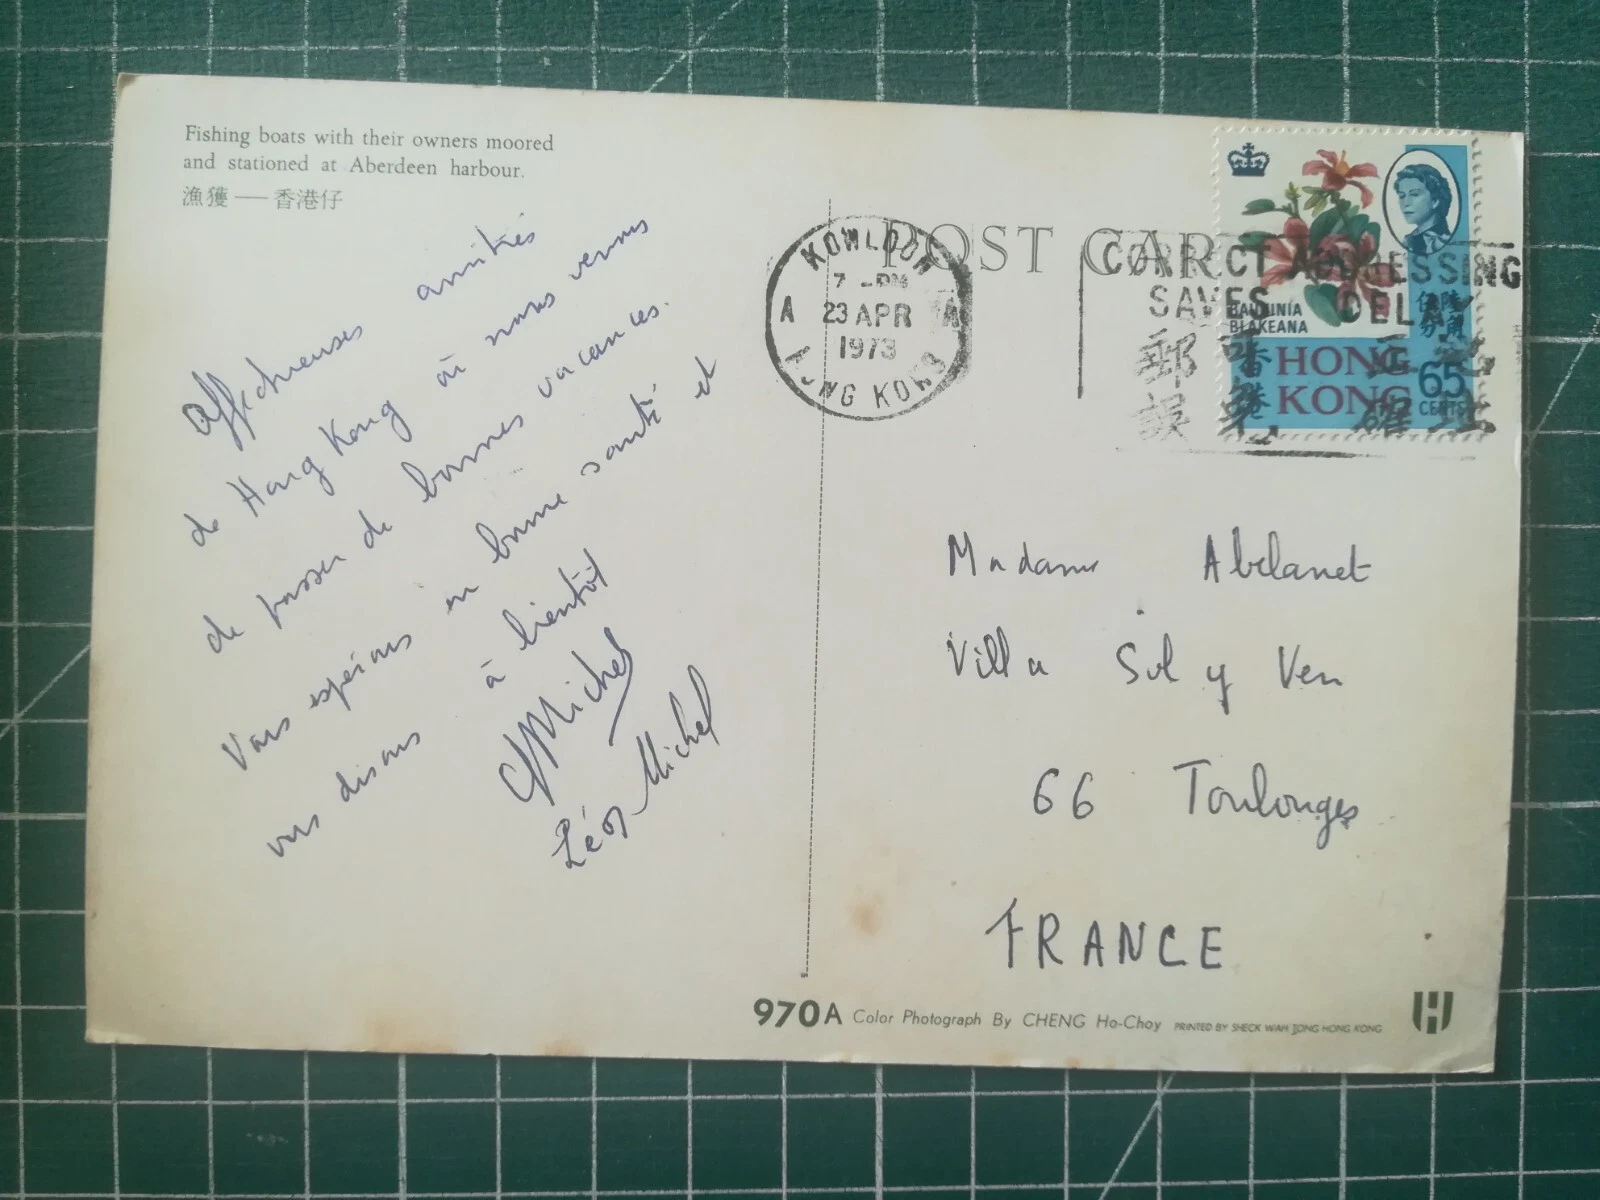 Fishing boats with their owners moored
and stationed at Aberdeen harbour.
漁獲——香港仔
Affectueuses amitiés
de Hong Kong où nous venons
de passer de bonnes vacances.
Vous espérons en bonne santé et
vous disons à bientôt
Michel
Léo Michel
POST CARD
KOWLOON
7 - PM
A 23 APR A
1973
HONG KONG
CORRECT ADDRESSING
SAVES DELAY
BAUHINIA
BLAKEANA
香港
HONG
KONG
65
CENTS
Madame Abelanet
Villa Sol y Ven
66 Toulouges
FRANCE
970A Color Photograph By CHENG Ho-Choy PRINTED BY SHECK WAH TONG HONG KONG